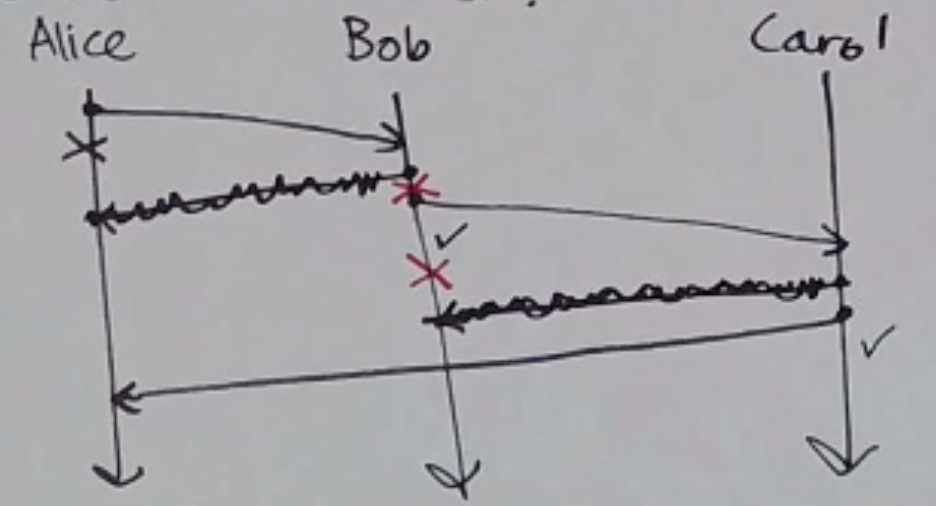 Alice Bob Carol